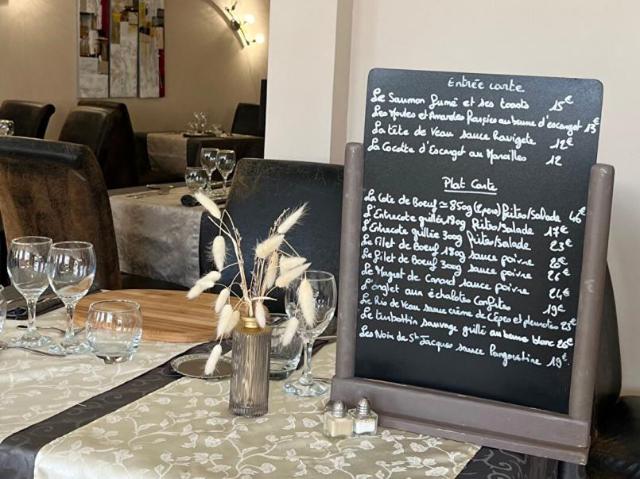 Entrée carte
Le Saumon fumé et ses toasts 15€
Les Moules et Amandes Farcies au beurre d'escargot 13€
La tête de Veau sauce Ravigote 12€
La Cocotte d'escargot au Maroilles 12
Plat Carte
La Côte de Boeuf ≃ 850g (2pers) frites/salade 46€
L'Entrecote grillée 190g frites/salade 17€
L'Entrecote grillée 300g frites/salade 23€
Le Filet de Boeuf 180g sauce poivre
Le filet de Boeuf 300g sauce poivre
Le Magret de Canard sauce poivre 24€
L'onglet aux échalotes Confites 19€
Le Ris de Veau sauce crème de Cèpes et pleurotes 25€
Le turbottin sauvage grillé au beurre blanc
Les Noix de St Jacques sauce 19€